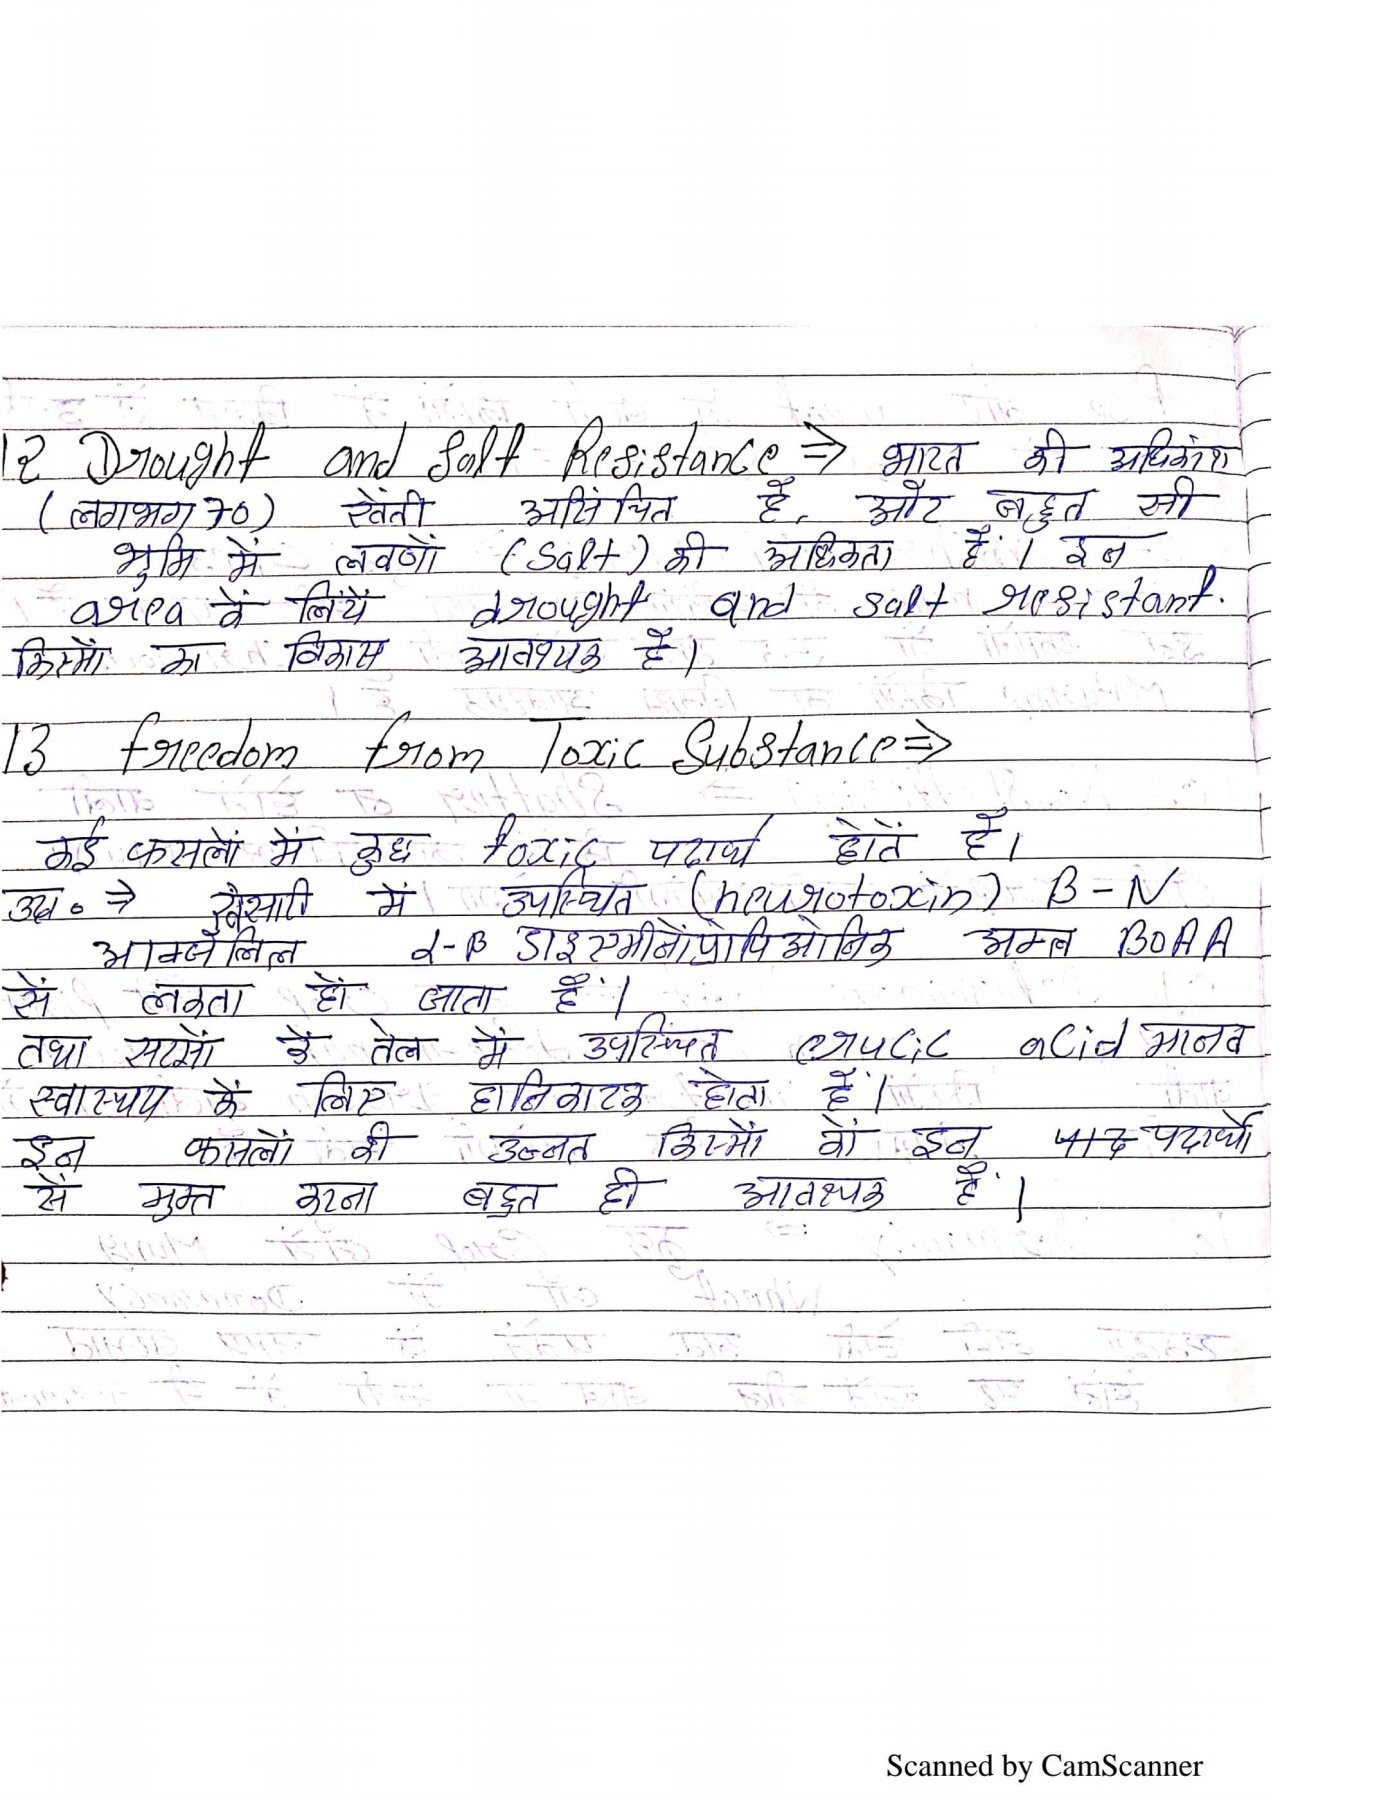 12 Drought and Salt Resistance ⇒ भारत की अधिकांश
(लगभग 70) खेती असिंचित है, और बहुत सी
भूमि में लवणों (Salt) की अधिकता है। इन
area के लियें drought and salt resistant.
किस्मों का विकास आवश्यक है।
13 freedom from Toxic Substance ⇒
कई फसलों में कुछ toxic पदार्थ होतें है।
उदा० ⇒ खेसारी में उपस्थित (neurotoxin) β - N
आक्जेलिल α-β डाइएमीनोंप्रोपिओनिक अम्ल BOAA
सें लकता हों जाता है।
तथा सरसों कें तेल में उपस्थित erucic acid मानव
स्वास्थय कें लिए हानिकारक होता है।
इन फसलों की उन्नत किस्मों कों इन पदार्थो
सें मुक्त करना बहुत ही आवश्यक है।
Scanned by CamScanner